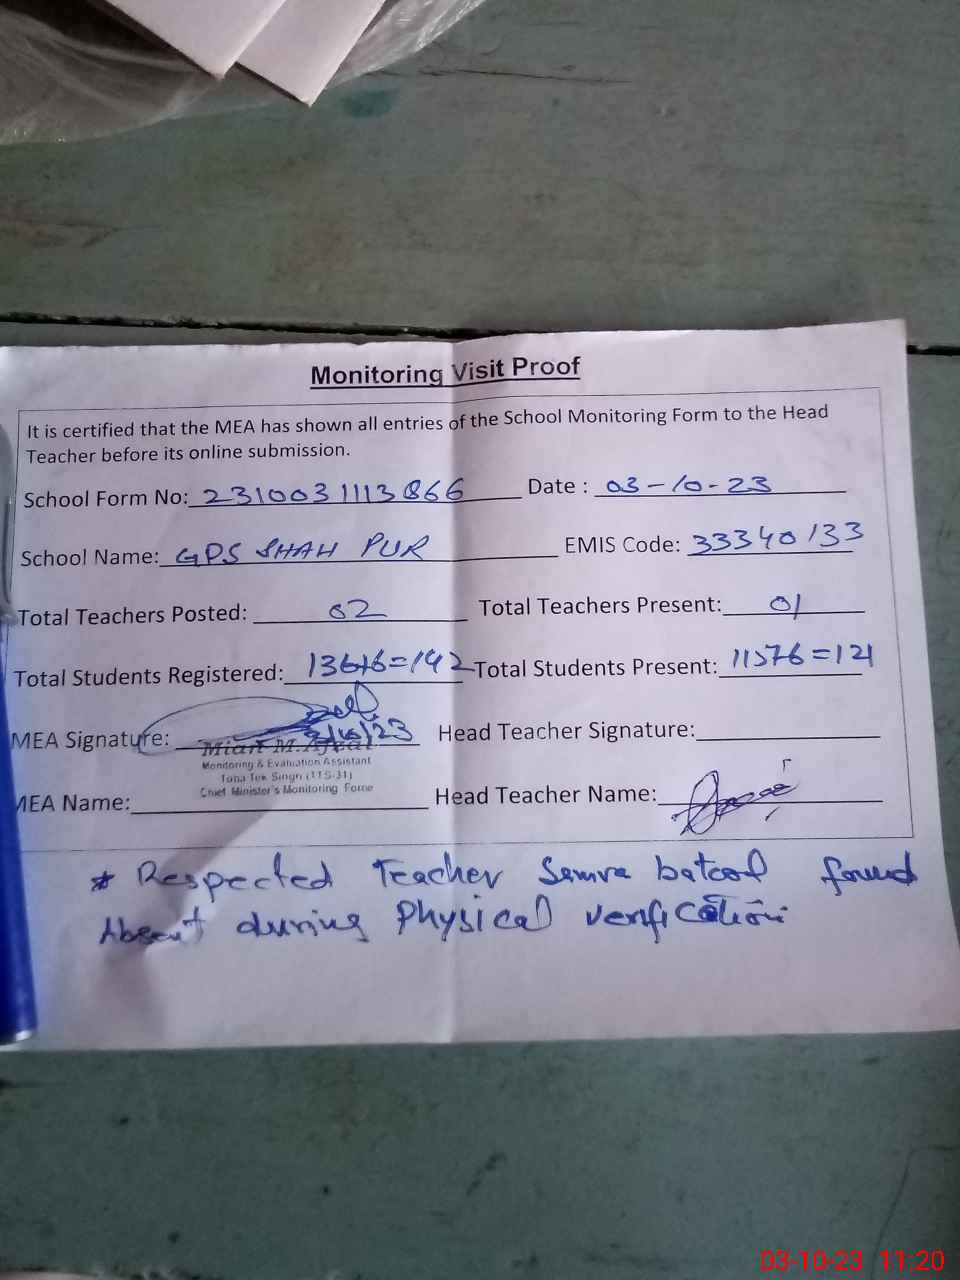 Monitoring Visit Proof
It is certified that the MEA has shown all entries of the School Monitoring Form to the Head
Teacher before its online submission.
School Form No: 2310031113866 Date : 03-10-23
School Name: GPS SHAH PUR EMIS Code: 33340133
Total Teachers Posted: 02 Total Teachers Present: 01
Total Students Registered: 136+6=142 Total Students Present: 115+6=121
MEA Signature: 3/10/23 Head Teacher Signature:
Mian M.
Monitoring & Evaluation Assistant
Toba Tek Singh (TTS-31)
Chief Minister's Monitoring Force
MEA Name: Head Teacher Name:
* Respected Teacher found
Absent during Physical verification
03-10-23 11:20